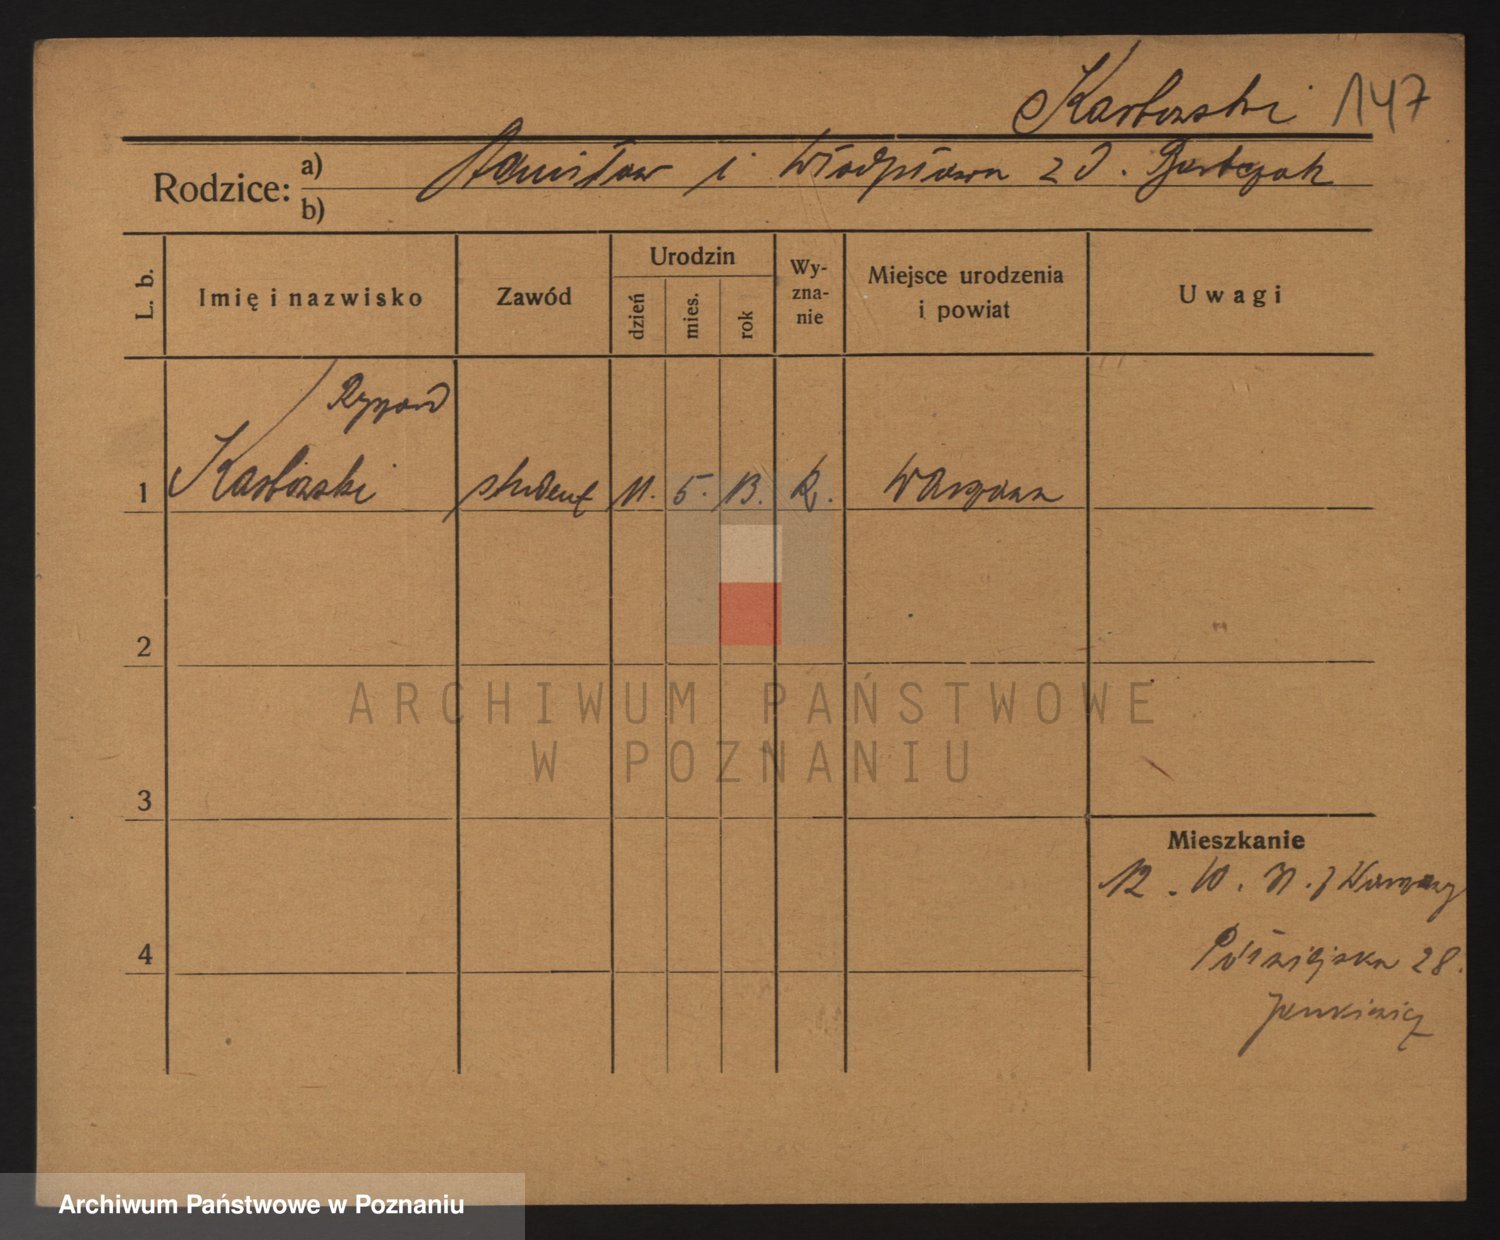 Karłowski 147
Rodzice: a) Stanisław i Władysława z d.
b)
L. b.
Imię i nazwisko
Zawód
Urodzin
dzień
mies.
rok
Wy-
zna-
nie
Miejsce urodzenia
i powiat
Uwagi
Ryszard
1 Karłowski student 11. 5. 13. Warszawa
2
3
4
Mieszkanie
12. 10. 31. z Warszawy
28.
ARCHIWUM PAŃSTWOWE
W POZNANIU
Archiwum Państwowe w Poznaniu